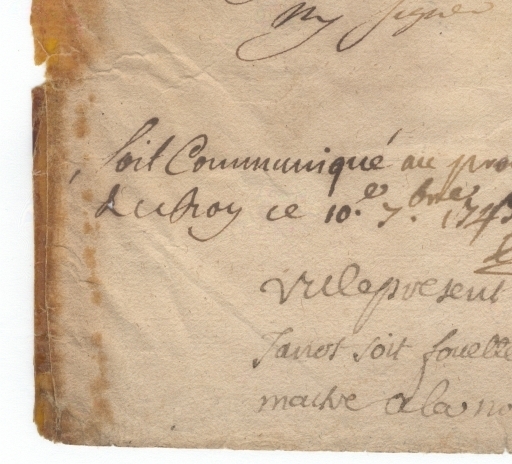 ny signer
Soit Communiqué au pro
du Roy ce 10.e 7.bre 1745
Vu le present
Jannot soit fouette
maitre a la no